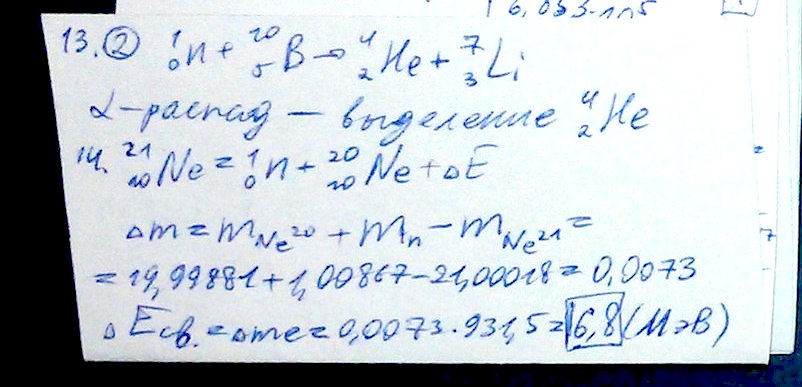 6,033·115
13. ② ¹₀n + ¹⁰₅B → ⁴₂He + ⁷₃Li
α-распад — выделение ⁴₂He
14. ²¹₁₀Ne = ¹₀n + ²⁰₁₀Ne + ΔE
Δm = m_Ne²⁰ + m_n − m_Ne²¹ =
= 19,99881 + 1,00867 − 21,00018 = 0,0073
ΔEсв. = Δmc = 0,0073·931,5 = 6,8 (МэВ)